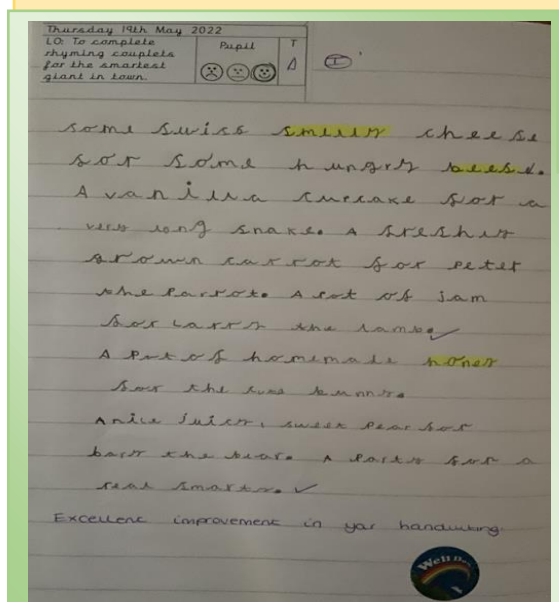 Thursday 19th May 2022
LO: To complete
rhyming couplets
for the smartest
giant in town.
Pupil
T
I
some swiss smelly cheese
for some hungry bees.
A vanilla cupcake for a
very long snake. A freshly
grown carrot for peter
the parrot. A pot of jam
for larry the lamb.
A pot of homemade honey
for the bunny.
A nice juicy, sweet pear for
the bear. A party for a
real smarty.
Excellent improvement in your handwriting.